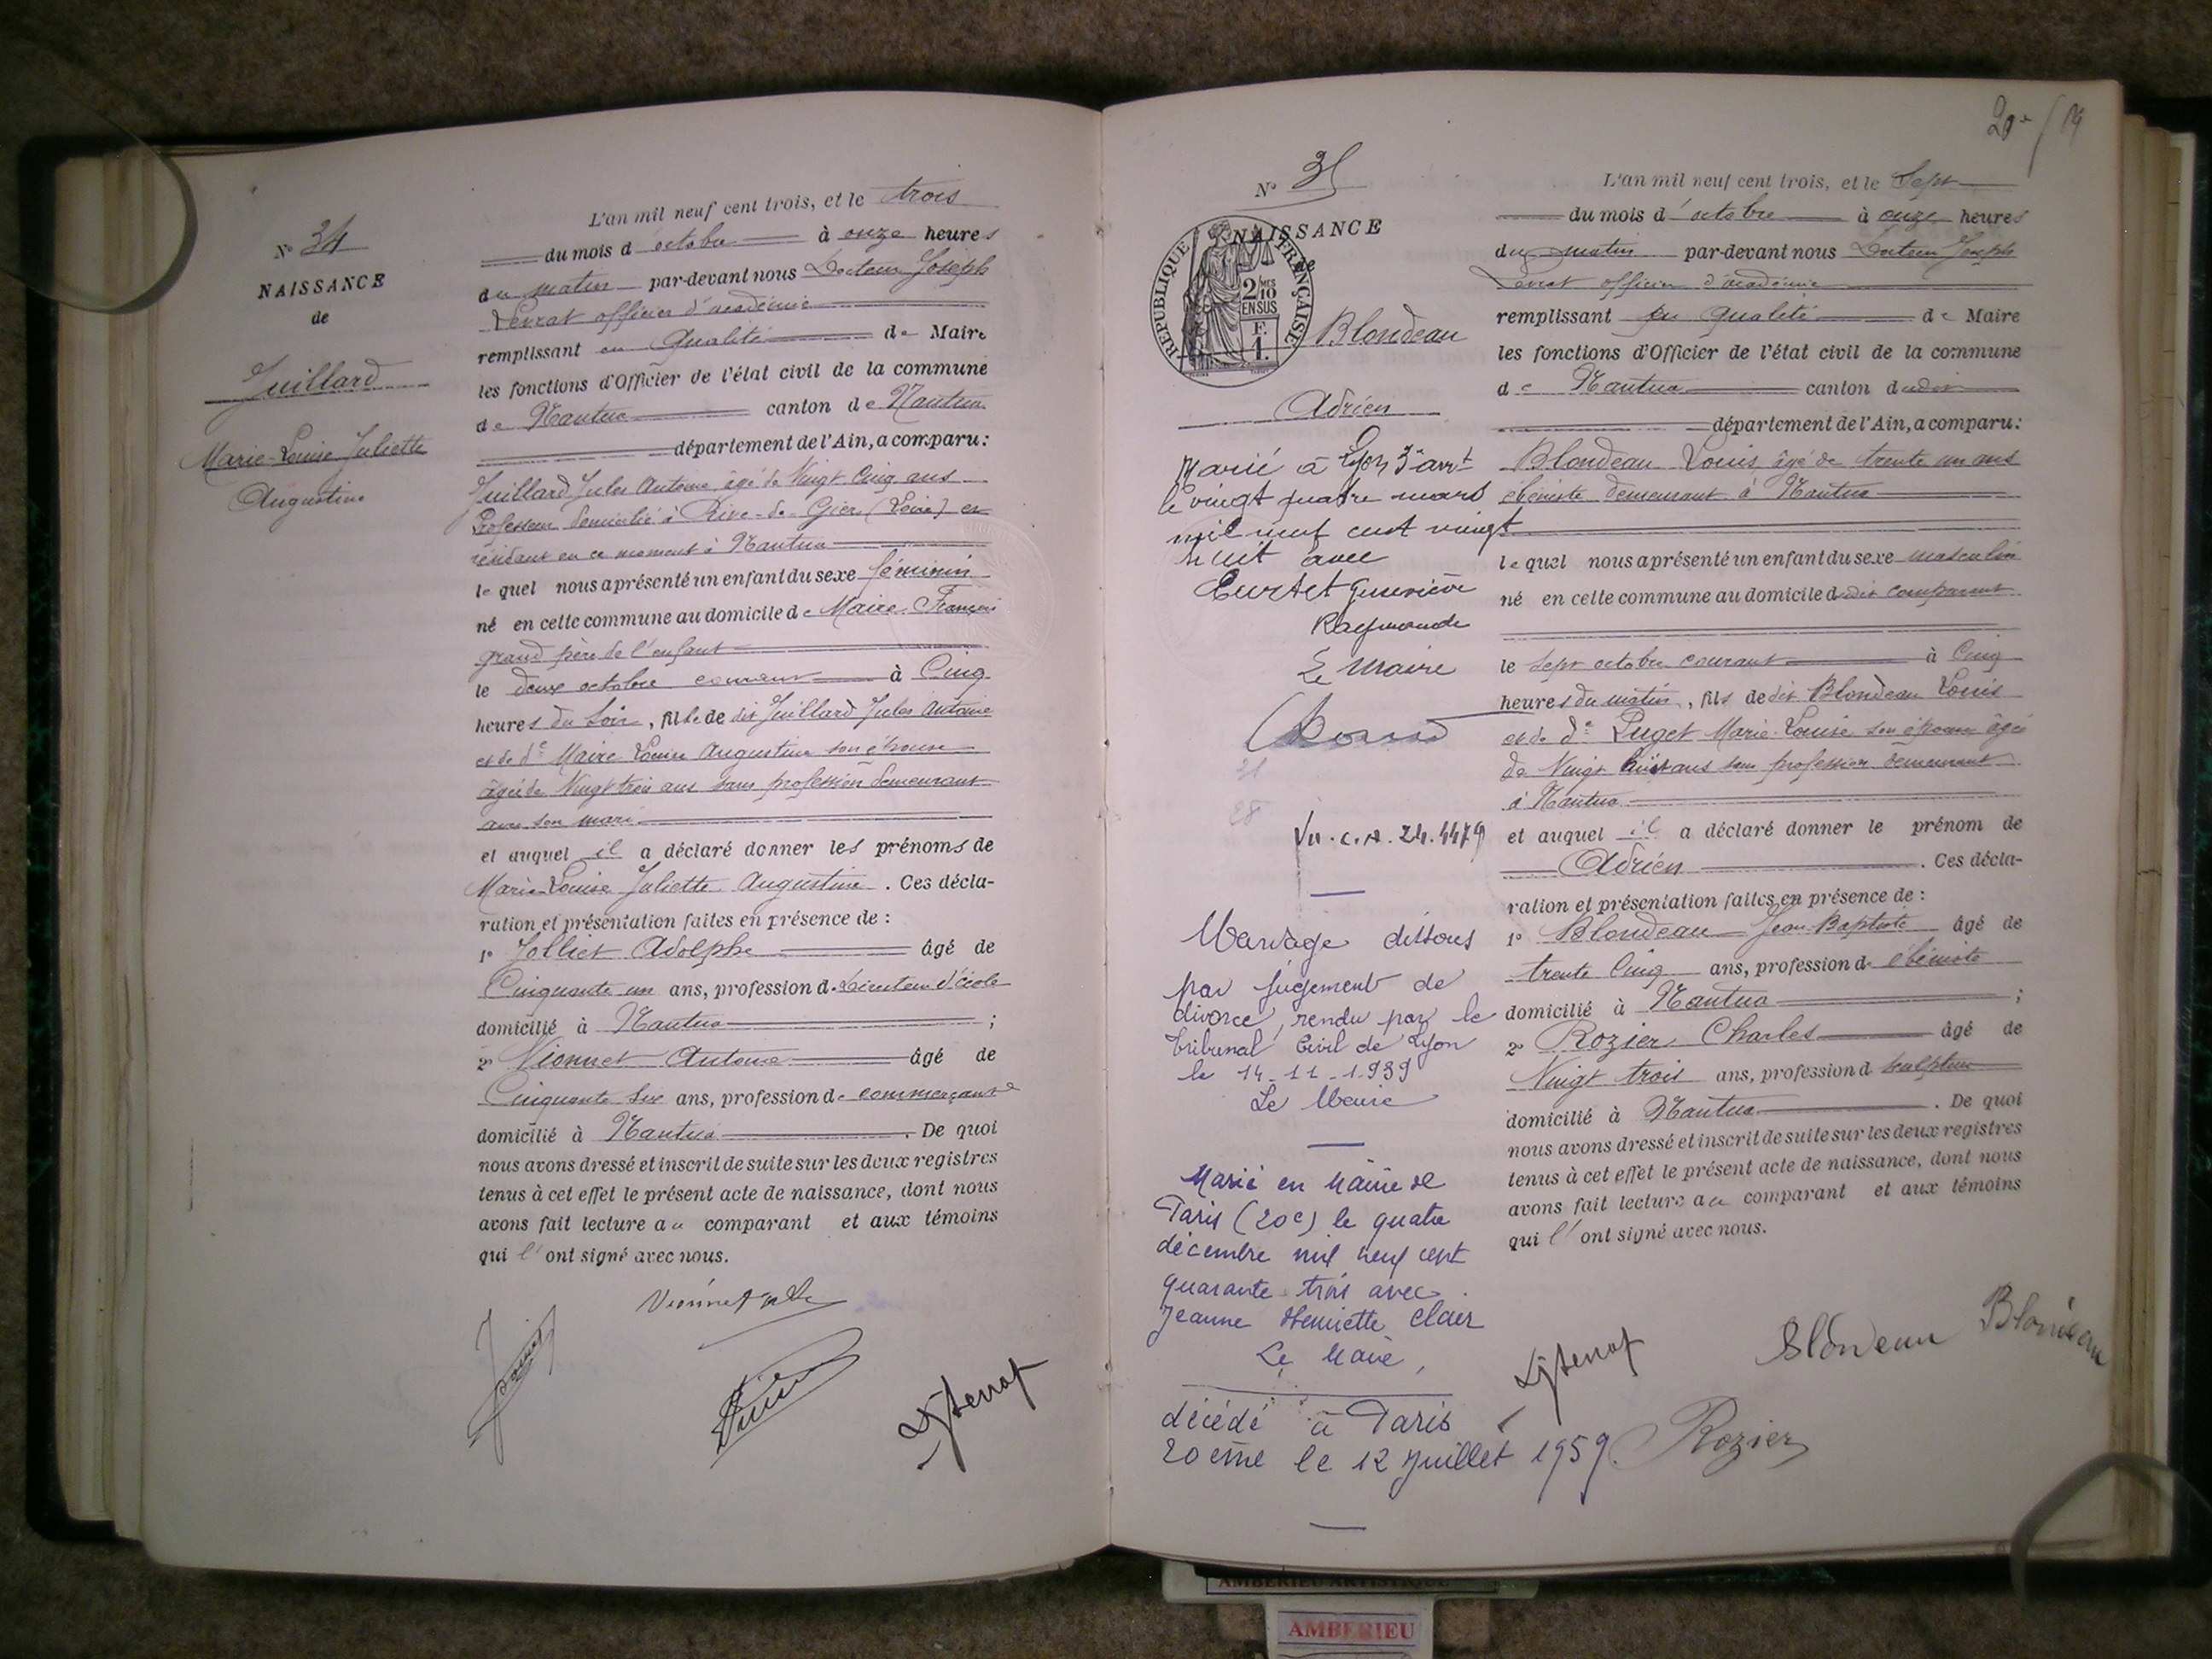 N° 34
NAISSANCE
de
Juillard
Marie-Louise Juliette
Augustine
L'an mil neuf cent trois, et le trois
du mois d'octobre à onze heures
du matin par-devant nous Docteur Joseph
officier d'académie
remplissant en qualité de Maire
les fonctions d'Officier de l'état civil de la commune
de Nantua canton de Nantua
département de l'Ain, a comparu:
Juillard Jules Antoine âgé de Vingt Cinq ans
Professeur domicilié à Rive-de-Gier (Loire) et
résidant en ce moment à Nantua
lequel nous a présenté un enfant du sexe féminin
né en cette commune au domicile de Maire François
grand père de l'enfant
le deux octobre courant à Cinq
heures du soir, fille de dit Juillard Jules Antoine
et de de Maire Louise Augustine son épouse
âgée de Vingt trois ans sans profession demeurant
avec son mari
et auquel il a déclaré donner les prénoms de
Marie-Louise Juliette Augustine. Ces décla-
ration et présentation faites en présence de :
1° Jolliet Adolphe âgé de
Cinquante un ans, profession de Directeur d'école
domicilié à Nantua ;
2° Vionnet Antoine âgé de
Cinquante six ans, profession de commerçant
domicilié à Nantua. De quoi
nous avons dressé et inscrit de suite sur les deux registres
tenus à cet effet le présent acte de naissance, dont nous
avons fait lecture au comparant et aux témoins
qui l'ont signé avec nous.
Vionnet
20e / 19
N° 35
NAISSANCE
de
REPUBLIQUE FRANÇAISE
2 MES
10
EN SUS
F.
1.
Blondeau
Adrien
Marié à Lyon 3e arrt
le vingt quatre mars
mil neuf cent vingt
huit avec
Curtet Geneviève
Raymonde
Le Maire
Mariage dissous
par jugement de
divorce, rendu par le
tribunal Civil de Lyon
le 14-11-1939
Le Maire
Marié en Mairie de
Paris (20e) le quatre
décembre mil neuf cent
quarante trois avec
Jeanne Henriette Claer
Le Maire,
décédé à Paris
20ème le 12 Juillet 1959.
L'an mil neuf cent trois, et le Sept
du mois d'octobre à onze heures
du matin par-devant nous Docteur Joseph
officier d'académie
remplissant en qualité de Maire
les fonctions d'Officier de l'état civil de la commune
de Nantua canton dudit
département de l'Ain, a comparu:
Blondeau Louis âgé de trente un ans
ébéniste demeurant à Nantua
lequel nous a présenté un enfant du sexe masculin
né en cette commune au domicile dudit comparant
le sept octobre courant à Cinq
heures du matin, fils de dit Blondeau Louis
et de de Puget Marie-Louise son épouse âgée
de Vingt huit ans sans profession demeurant
à Nantua
et auquel il a déclaré donner le prénom de
Adrien. Ces décla-
ration et présentation faites en présence de :
1° Blondeau Jean-Baptiste âgé de
trente Cinq ans, profession d'ébéniste
domicilié à Nantua ;
2° Rozier Charles âgé de
Vingt trois ans, profession d sculpteur
domicilié à Nantua. De quoi
nous avons dressé et inscrit de suite sur les deux registres
tenus à cet effet le présent acte de naissance, dont nous
avons fait lecture au comparant et aux témoins
qui l'ont signé avec nous.
Blondeau Blondeau
Rozier
AMBERIEU ARTISTIQUE
AMBERIEU